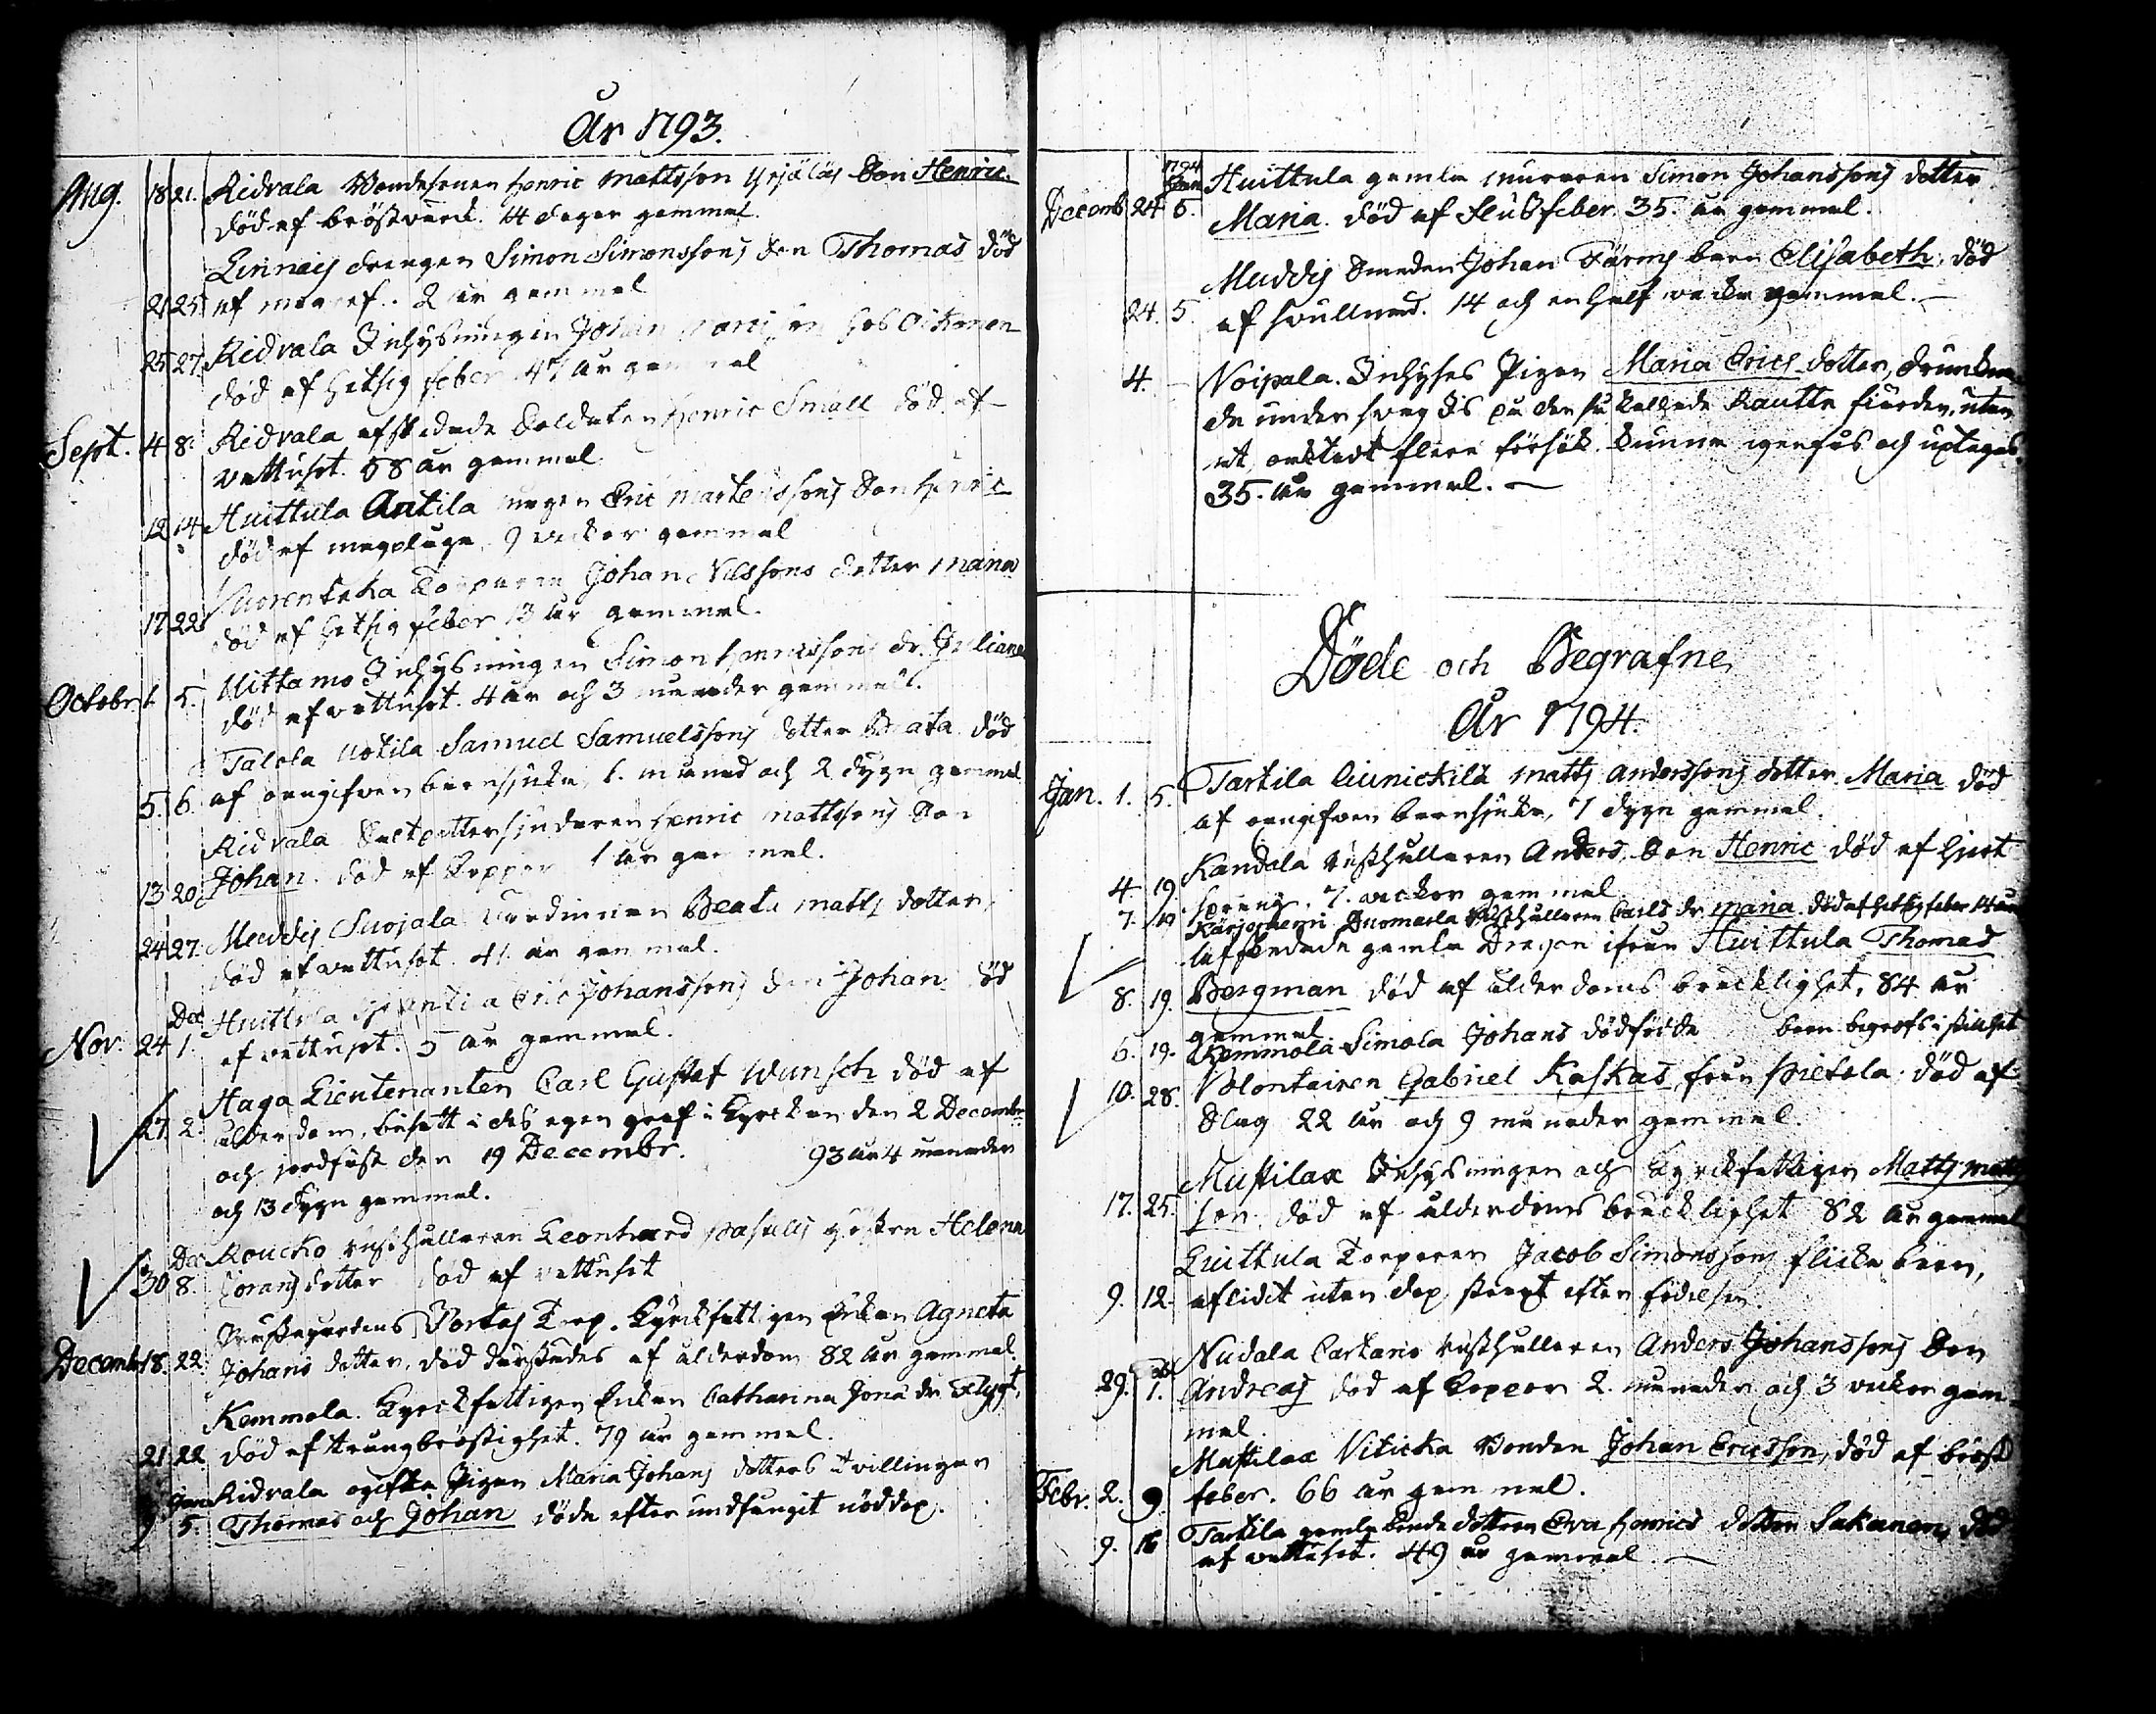 År 1793.
Aug. 18 21. Ridvala Bondesonen Henric Mattsson Yrjäläs Son Henric.
död af bröstvärck. 14 dagar gammal.
Linnais drengen Simon Simonssons Son Thomas död
21 25 af 2 år gammal
25 27. Ridvala Inhysningen Johan
död af hetsig feber 47 år gammal
Sept. 4 8. Ridvala afskedade Soldaten Henric Small död af
vattusot. 58 år gammal.
12 14 Huittula Antila Eric Mårtenssons Son Henric
död af magplåga, 9 veckor gammal
Vuorentaka Torparen Johan Nilssons dotter Maria
17 22 död af hetsig feber 13 år gammal.
Uittamo Inhysningen Simon Henricssons dr. Juliana
Octobr. 1. 5. död af vattusot. 4 år och 3 månader gammal.
Talola Uotila Samuel Samuelssons dotter Beata död
5. 6. af oangifven barnsjuka, 1. månad och 2 dygn gammal
Ridvala Saltpettersjudaren Henric Mattssons Son
13 20 Johan. död af koppor 1 år gammal.
24 27. Meuddis Suojala Värdinnan Beata Matts dotter,
död af vattusot. 41. år gammal.
Dec Huittula Eric Johanssons Son Johan död
Nov. 24 1. af vattusot. 5 år gammal.
Haga Lieutenanten Carl Gustaf Wunsch död af
27. 2. ålderdom, bisatt i dess egen graf i Kyrckan den 2 Decembr
och jordfäst den 19 Decembr. 93 år 4 månader
och 13 dygn gammal.
Dec Roucko rusthållaren Leonhard hustru Helena
30 8. Jöransdotter död af vattusot
Prästegårdens Portas Torp. Kyrckfattigen Enkan Agneta
Decemb 18. 22. Johans dotter, död därstädes af ålderdom 82 år gammal.
Kemmola. Kyrckfattigen Enkan Catharina Jona dr Flygt,
21 22 död af trångbröstighet. 79 år gammal.
Jan Ridvala ogifta Pigan Maria Johans dotters Tvillingar
9 5. Thomas och Johan döda efter undfångit nöddop.
1794
Jan Huittula gamla muraren Simon Johanssons dotter
Decemb 24 5. Maria. död af Flussfeber. 35. år gammal.
Muddis Smeden Johan Färms barn Elisabeth, död
24. 5. af svullnad. 14 och en half vecka gammal.
4. Noipala. Inhyses Pigan Maria Erics dotter, drunkna
de under svag Is på den så kallade Rautte fiärden, utan
at, oaktadt flere försök kunna igenfås och uptagas.
35. år gammal.
Döde och Begrafne
År 1794.
Jan. 1. 5. Tarkila Cuinickilä Matts Anderssons dotter Maria död
af oangifven barnsjuka, 7 dygn gammal.
Kandala rusthållaren Anders Son Henric död af hiert
4. 19 språng. 7. veckor gammal
7. 19 Kärjoniemi Duomaela Rusthållaren Carls dr Maria död af hetsig feber 14 år
afskedade gamla Dragon ifrån Huittula Thomas
8. 19. Bergman död af ålderdoms bräcklighet, 84 år
gammal
6. 19. Kemmola Simola Johans dödfödda barn begrofs i stillhet
10. 28. Volontairen Gabriel Kaskas, från Pietola död af
Slag 22 år och 9 månader gammal.
Mustilax Inhysningen och Kyrckfattigen Matts Matts
17. 25. son död af ålderdoms bräcklighet 82 år gammal
Huittula Torparen Jacob Simonssons flicke barn,
9. 12. aflidit utan dop straxt efter födelsen.
Nudala Cartano rusthållaren Anders Johanssons Son
29. 1. Andreas död af koppor 2. månader och 3 veckor gam
mal.
Mustilax Viticka Bonden Johan Ericsson, död af bröst
Febr. 2. 9 feber. 66 år gammal.
9. 16 Tarkila gamla Bonde dottren Eva Henrics dotter Sakanen, död
af vattusot. 49 år gammal.